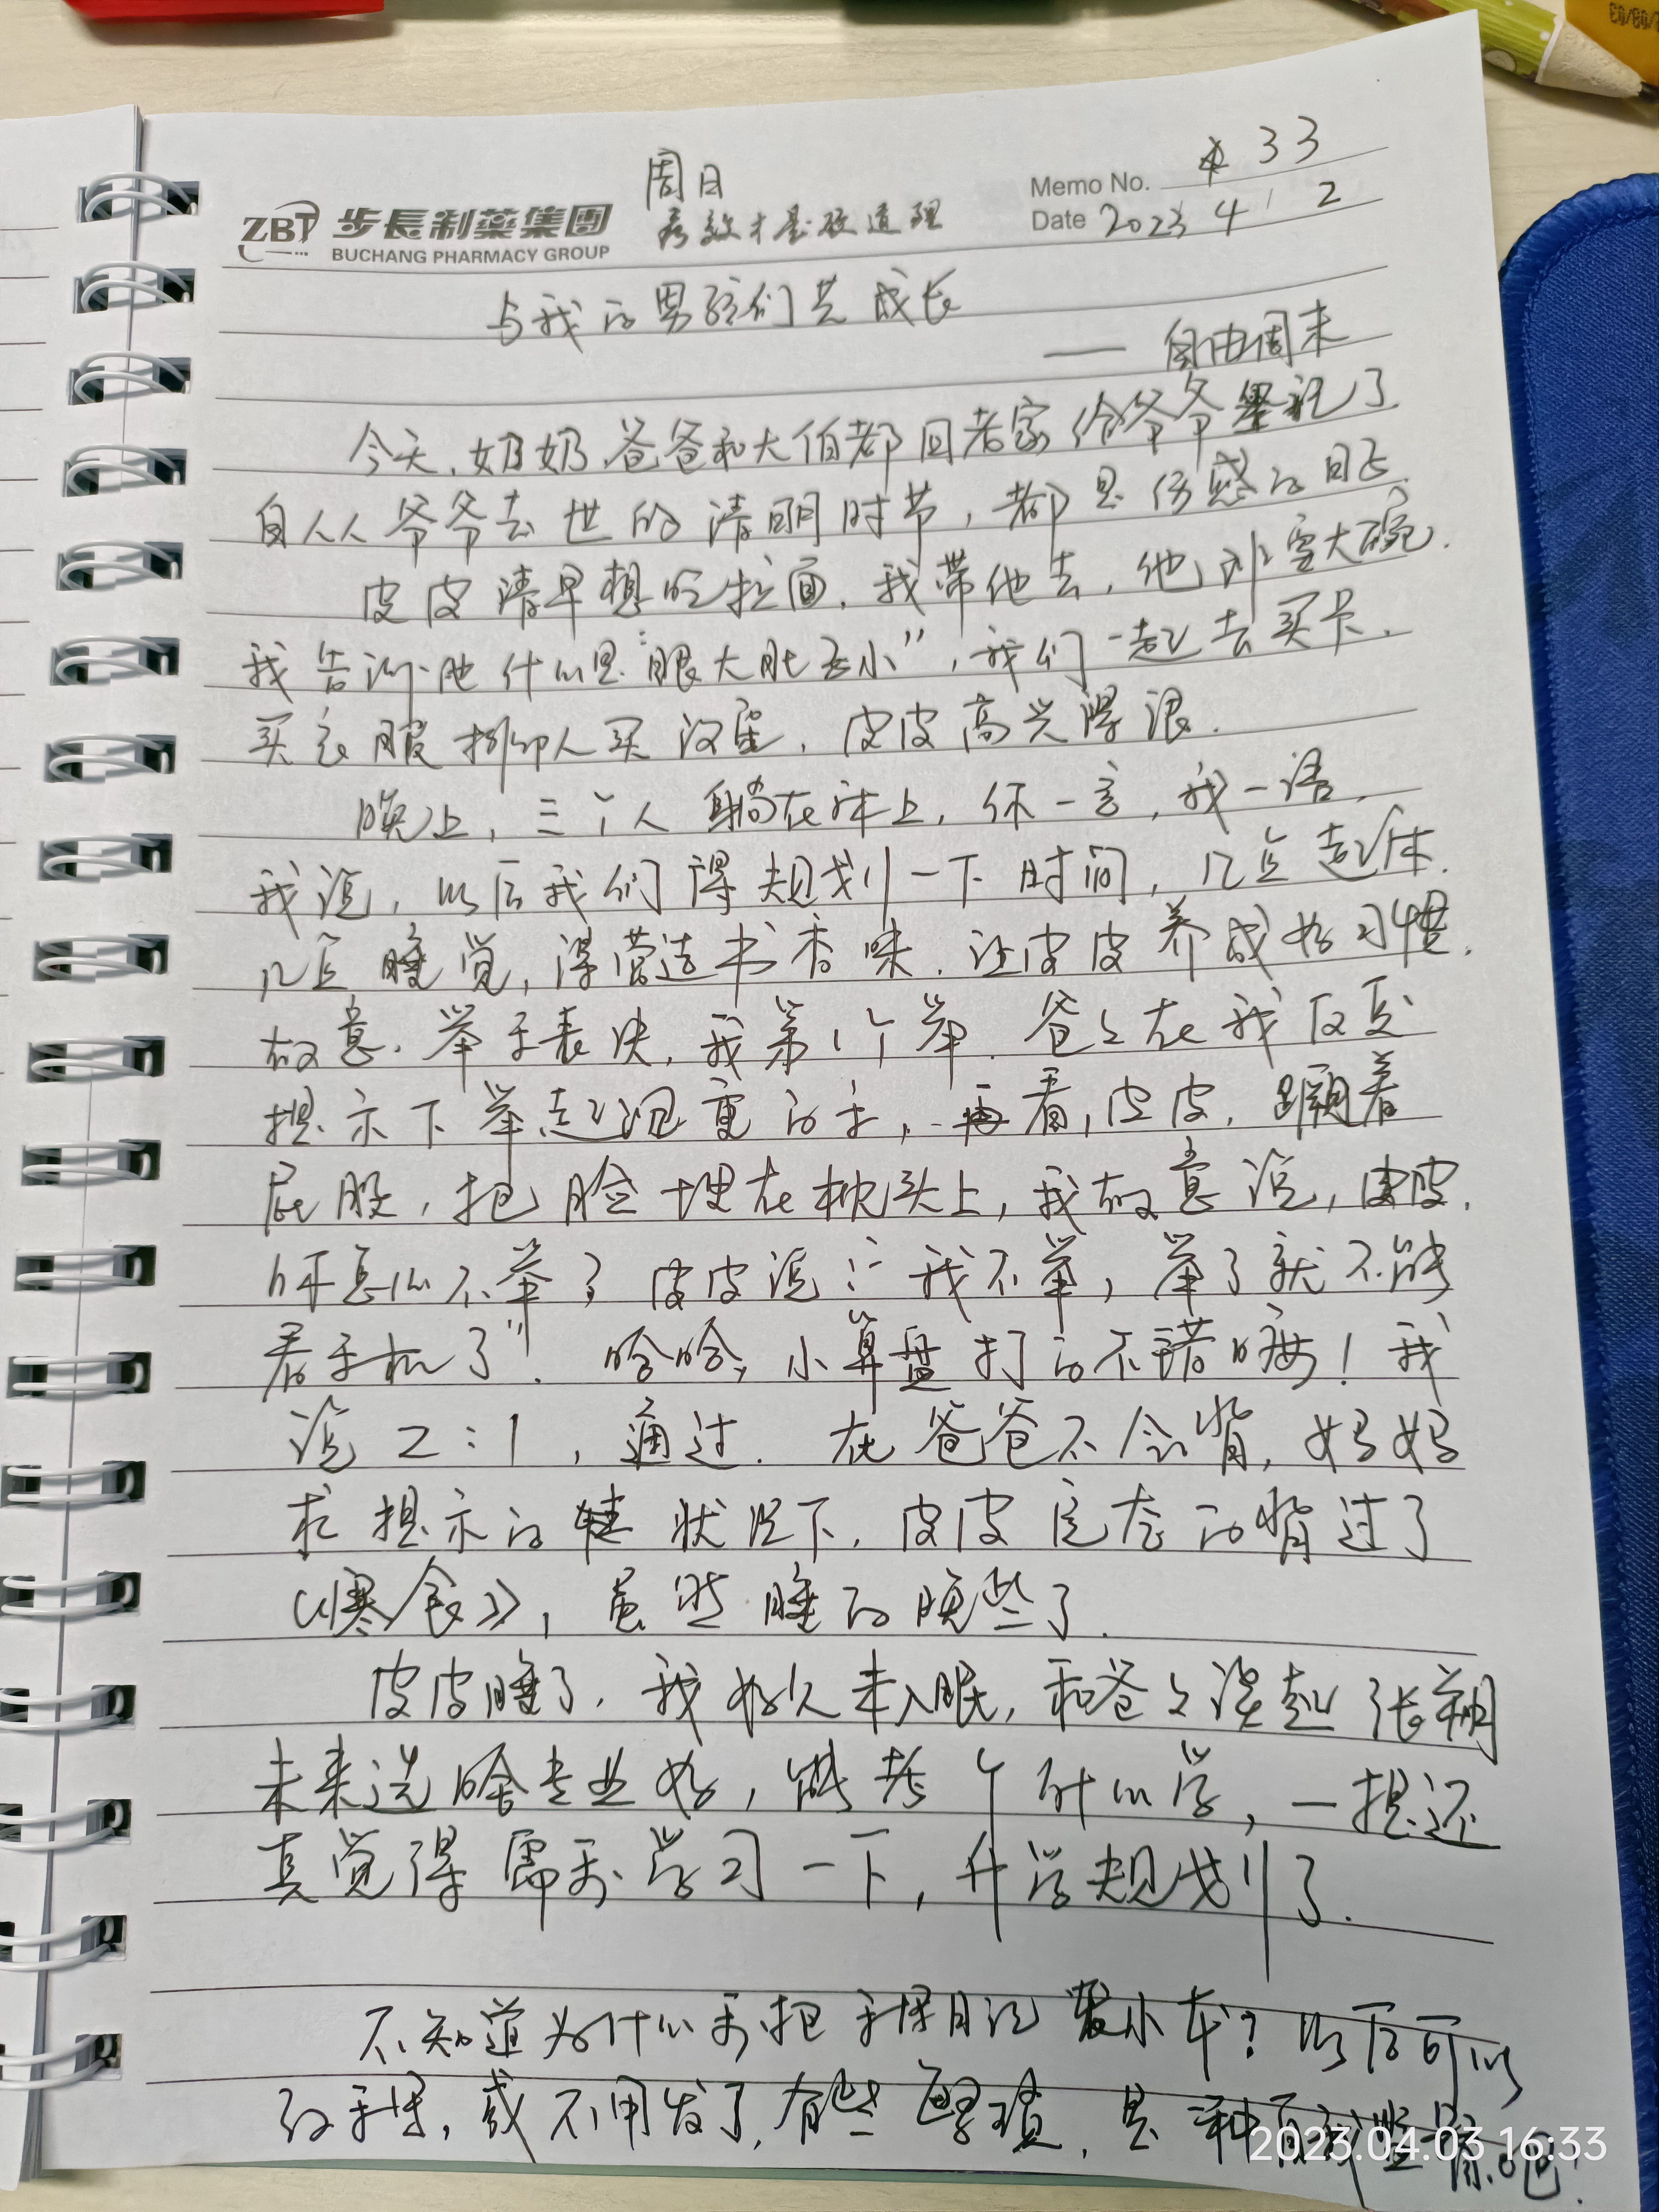 周日
Memo No. 33
ZBT 步長制藥集團
孝敬才是硬道理
Date 2023 4 / 2
BUCHANG PHARMACY GROUP
与我的男孩们共成长
—— 自由周末
今天,奶奶、爸爸和大伯都回老家给爷爷了
自从爷爷去世的清明时节,都是伤感的日子.
皮皮清早想吃拉面,我带他去,他非要大碗.
我告诉他什么是“眼大肚子小”,我们一起去买卡.
买衣服 人买,皮皮高兴得很.
晚上,三个人躺在床上,你一言,我一语,
我说,以后我们得规划一下时间,几点起床.
几点睡觉,得营造书香味.让皮皮养成好习惯.
故意.举手表决,我第1个举.爸爸在我反复
提示下举起沉重的手,再看,皮皮,蹶着
屁股,把脸埋在枕头上,我故意说,皮皮.
你怎么不举?皮皮说:“我不举,举了就不能
看手机了”.哈哈,小算盘打的不错嘛!我
说2:1,通过.在爸爸不会背,妈妈
求提示的状况下,皮皮完整的背过了
《寒食》,虽然睡的晚些了.
皮皮睡了.我好久未入眠,和爸爸谈起张翔
未来选啥专业好,能考个什么学,一想还
真觉得需要学习一下,升学规划了.
不知道为什么要把手写日记发小本?以后可以
手写,或不用发了,有些,是种自我吧!
2023.04.03 16:33